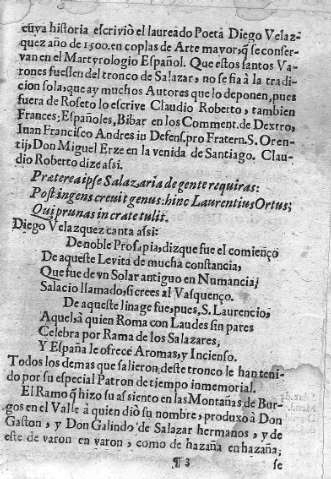 cuya historia escriviò el laureado Poeta Diego Velaz-
quez año de 1500. en coplas de Arte mayor, q̃ se conser-
van en el Martyrologio Español. Que estos santos Va-
rones fuessen del tronco de Salazar, no se fia à la tradi-
cion sola, que ay muchos Autores que lo deponen, pues
fuera de Roseto lo escrive Claudio Roberto, tambien
Frances; Españoles, Bibar en los Comment. de Dextro,
Iuan Francisco Andres in Defens. pro Fratern. S. Oren-
tij, Don Miguel Erze en la venida de Santiago. Clau-
dio Roberto dize assi.
Præterea ipse Salazaria de gente requiras:
Post ingens crevit genus: hinc Laurentius Ortus;
Qui prunas in crate tulit.
Diego Velazquez canta assi:
De noble Prosapia, dizque fue el comienço
De aqueste Levita de mucha constancia,
Que fue de vn Solar antiguo en Numancia;
Salacio llamado, si crees al Vasquenço.
De aqueste linage fue, pues, S. Laurencio,
Aquel à quien Roma con Laudes sin pares
Celebra por Rama de los Salazares;
Y España le ofrece Aromas, y Incienso.
Todos los demas que salieron deste tronco le han teni-
do por su especial Patron de tiempo inmemorial.
El Ramo q̃ hizo su assiento en las Montañas de Bur-
gos en el Valle à quien diò su nombre, produxo à Don
Gaston, y Don Galindo de Salazar hermanos, y de
este de varon en varon, como de hazaña en hazaña;
¶ 3 se